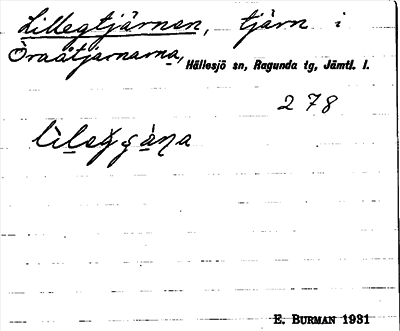 Lillegtjärnen, tjärn i
Öraåtjärnarna, Hällesjö sn, Ragunda tg, Jämtl. l.
278
E. BURMAN 1931